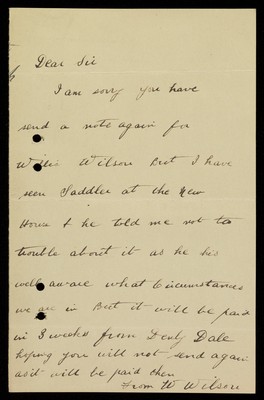 Dear Sir
I am sorry you have
send a note again for
Willie Wilson But I have
seen Saddler at the New
House & he told me not to
trouble about it as he his
well aware what Circumstances
we are in But it will be paid
in 3 weeks from Dale
hoping you will not send again
as it will be paid then
From W Wilson